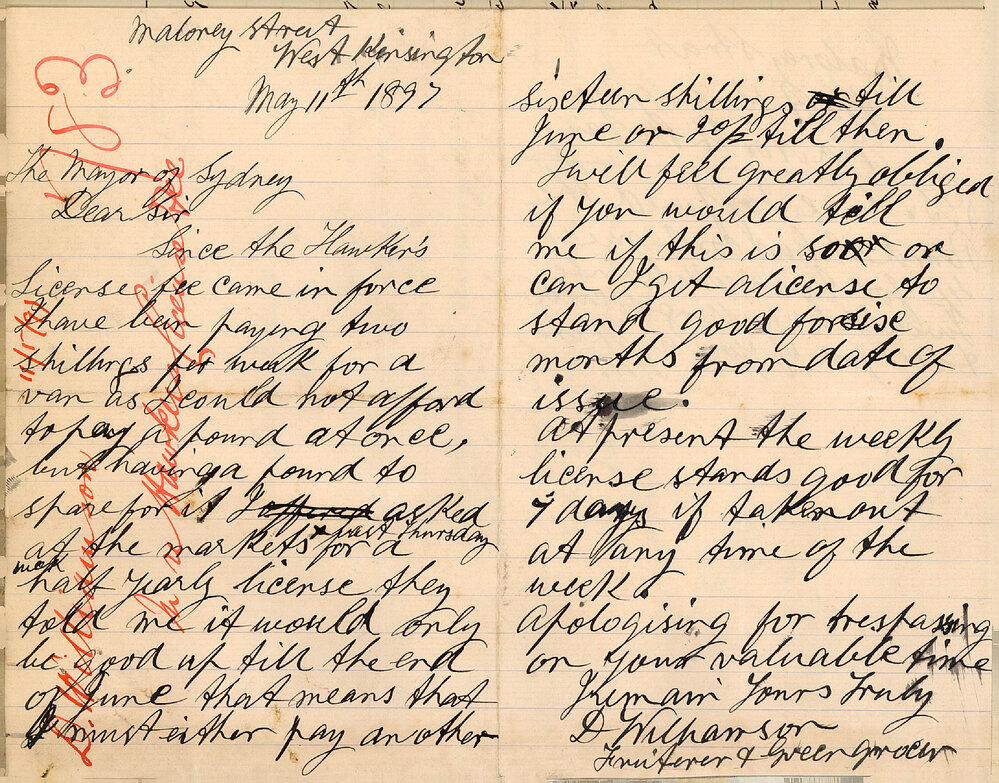 Maloney street
West Kensington
May 11th 1897
The Mayor of Sydney
Dear Sir
Since the Hawker's
License fee came in force
I have been paying two
shillings per week for a
van as I could not afford
to pay a pound at once,
but having a pound to
spare for it I offered asked
at the markets last Thursday for a
week
half yearly license they
told me it would only
be good up till the end
of June that means that
I must either pay another
sixteen shillings or till
June or 20/- till then.
I will feel greatly obliged
if you would tell
me if this is so or
can I get a license to
stand good for six
months from date of
issue.
At present the weekly
license stands good for
7 days if taken out
at any time of the
week.
Apologising for trespassing
on your valuable time
I remain Yours Truly
D Williamson
Fruiterer & Green grocer
D. Williamson
11/5/97
re Hawkers license fees
/83